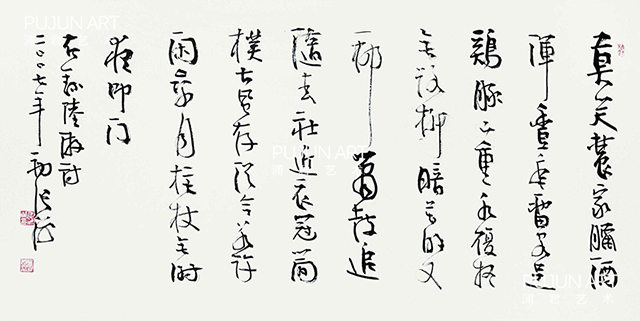 莫笑農家臘酒
渾豐年留客足
鷄豚山重水復疑
無路柳暗花明又
一村簫鼓追
隨春社近衣冠簡
樸古風存從今若許
閑乘月拄杖無時
夜叩門
右録陸游詩
二〇〇七年初
PUJUN ART
PUJUN ART
PUJUN ART
PUJUN ART